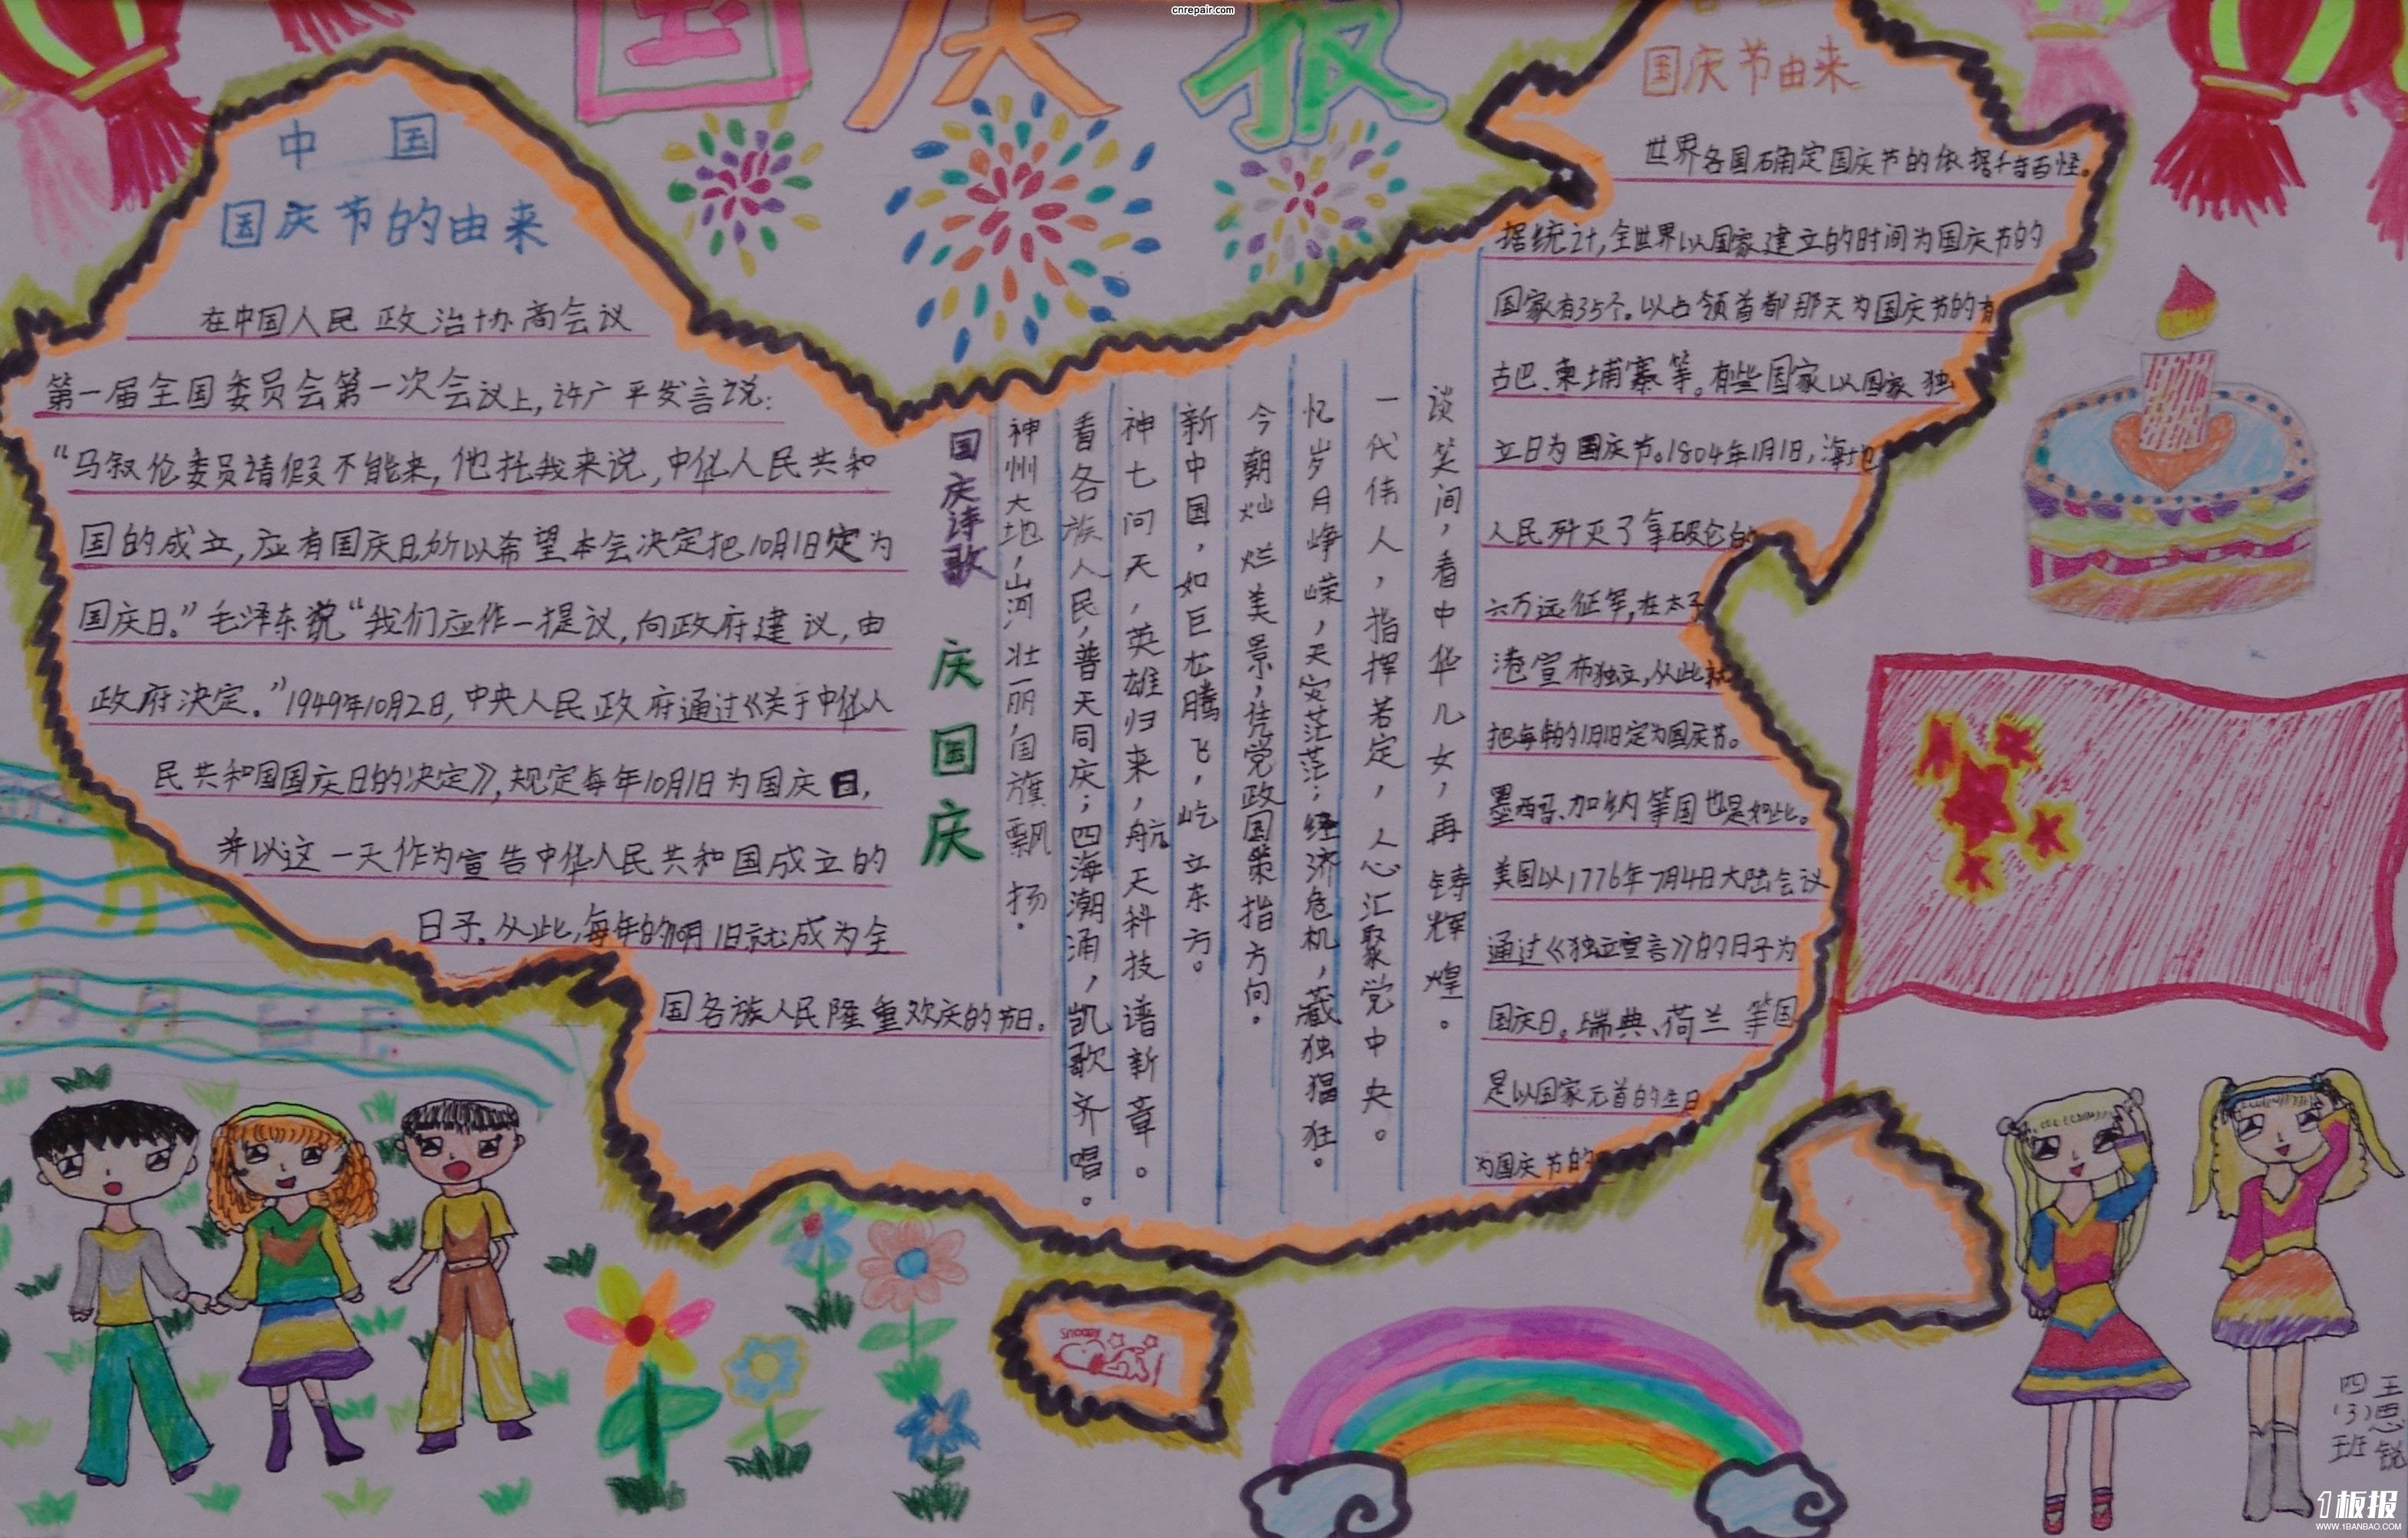 cnrepair.com
国庆报
中国
国庆节的由来
在中国人民政治协商会议
第一届全国委员会第一次会议上,许广平发言说:
“马叙伦委员请假不能来,他托我来说,中华人民共和
国的成立,应有国庆日,所以希望本会决定把10月1日定为
国庆日。”毛泽东说“我们应作一提议,向政府建议,由
政府决定。”1949年10月2日,中央人民政府通过《关于中华人
民共和国国庆日的决定》,规定每年10月1日为国庆日,
并以这一天作为宣告中华人民共和国成立的
日子。从此,每年的10月1日就成为全
国各族人民隆重欢庆的节日。
国庆诗歌
庆国庆
神州大地,山河壮丽,国旗飘扬。
看各族人民,普天同庆;四海潮涌,凯歌齐唱。
神七问天,英雄归来,航天科技谱新章。
新中国,如巨龙腾飞,屹立东方。
今朝灿烂美景,凭党政国策指方向。
忆岁月峥嵘,天灾茫茫;经济危机,藏独猖狂。
一代伟人,指挥若定,人心汇聚党中央。
谈笑间,看中华儿女,再铸辉煌。
国庆节由来
世界各国确定国庆节的依据千奇百怪。
据统计,全世界以国家建立的时间为国庆节的
国家有35个。以占领首都那天为国庆节的有
古巴、柬埔寨等。有些国家以国家独
立日为国庆节。1804年1月1日,海地
人民歼灭了拿破仑的
六万远征军,在太子
港宣布独立,从此就
把每年的1月1日定为国庆节。
墨西哥、加纳等国也是如此。
美国以1776年7月4日大陆会议
通过《独立宣言》的日子为
国庆日。瑞典、荷兰等国
是以国家元首的生日
为国庆节的
Snoopy
四(3)班
王思锐
1板报
WWW.1BANBAO.COM